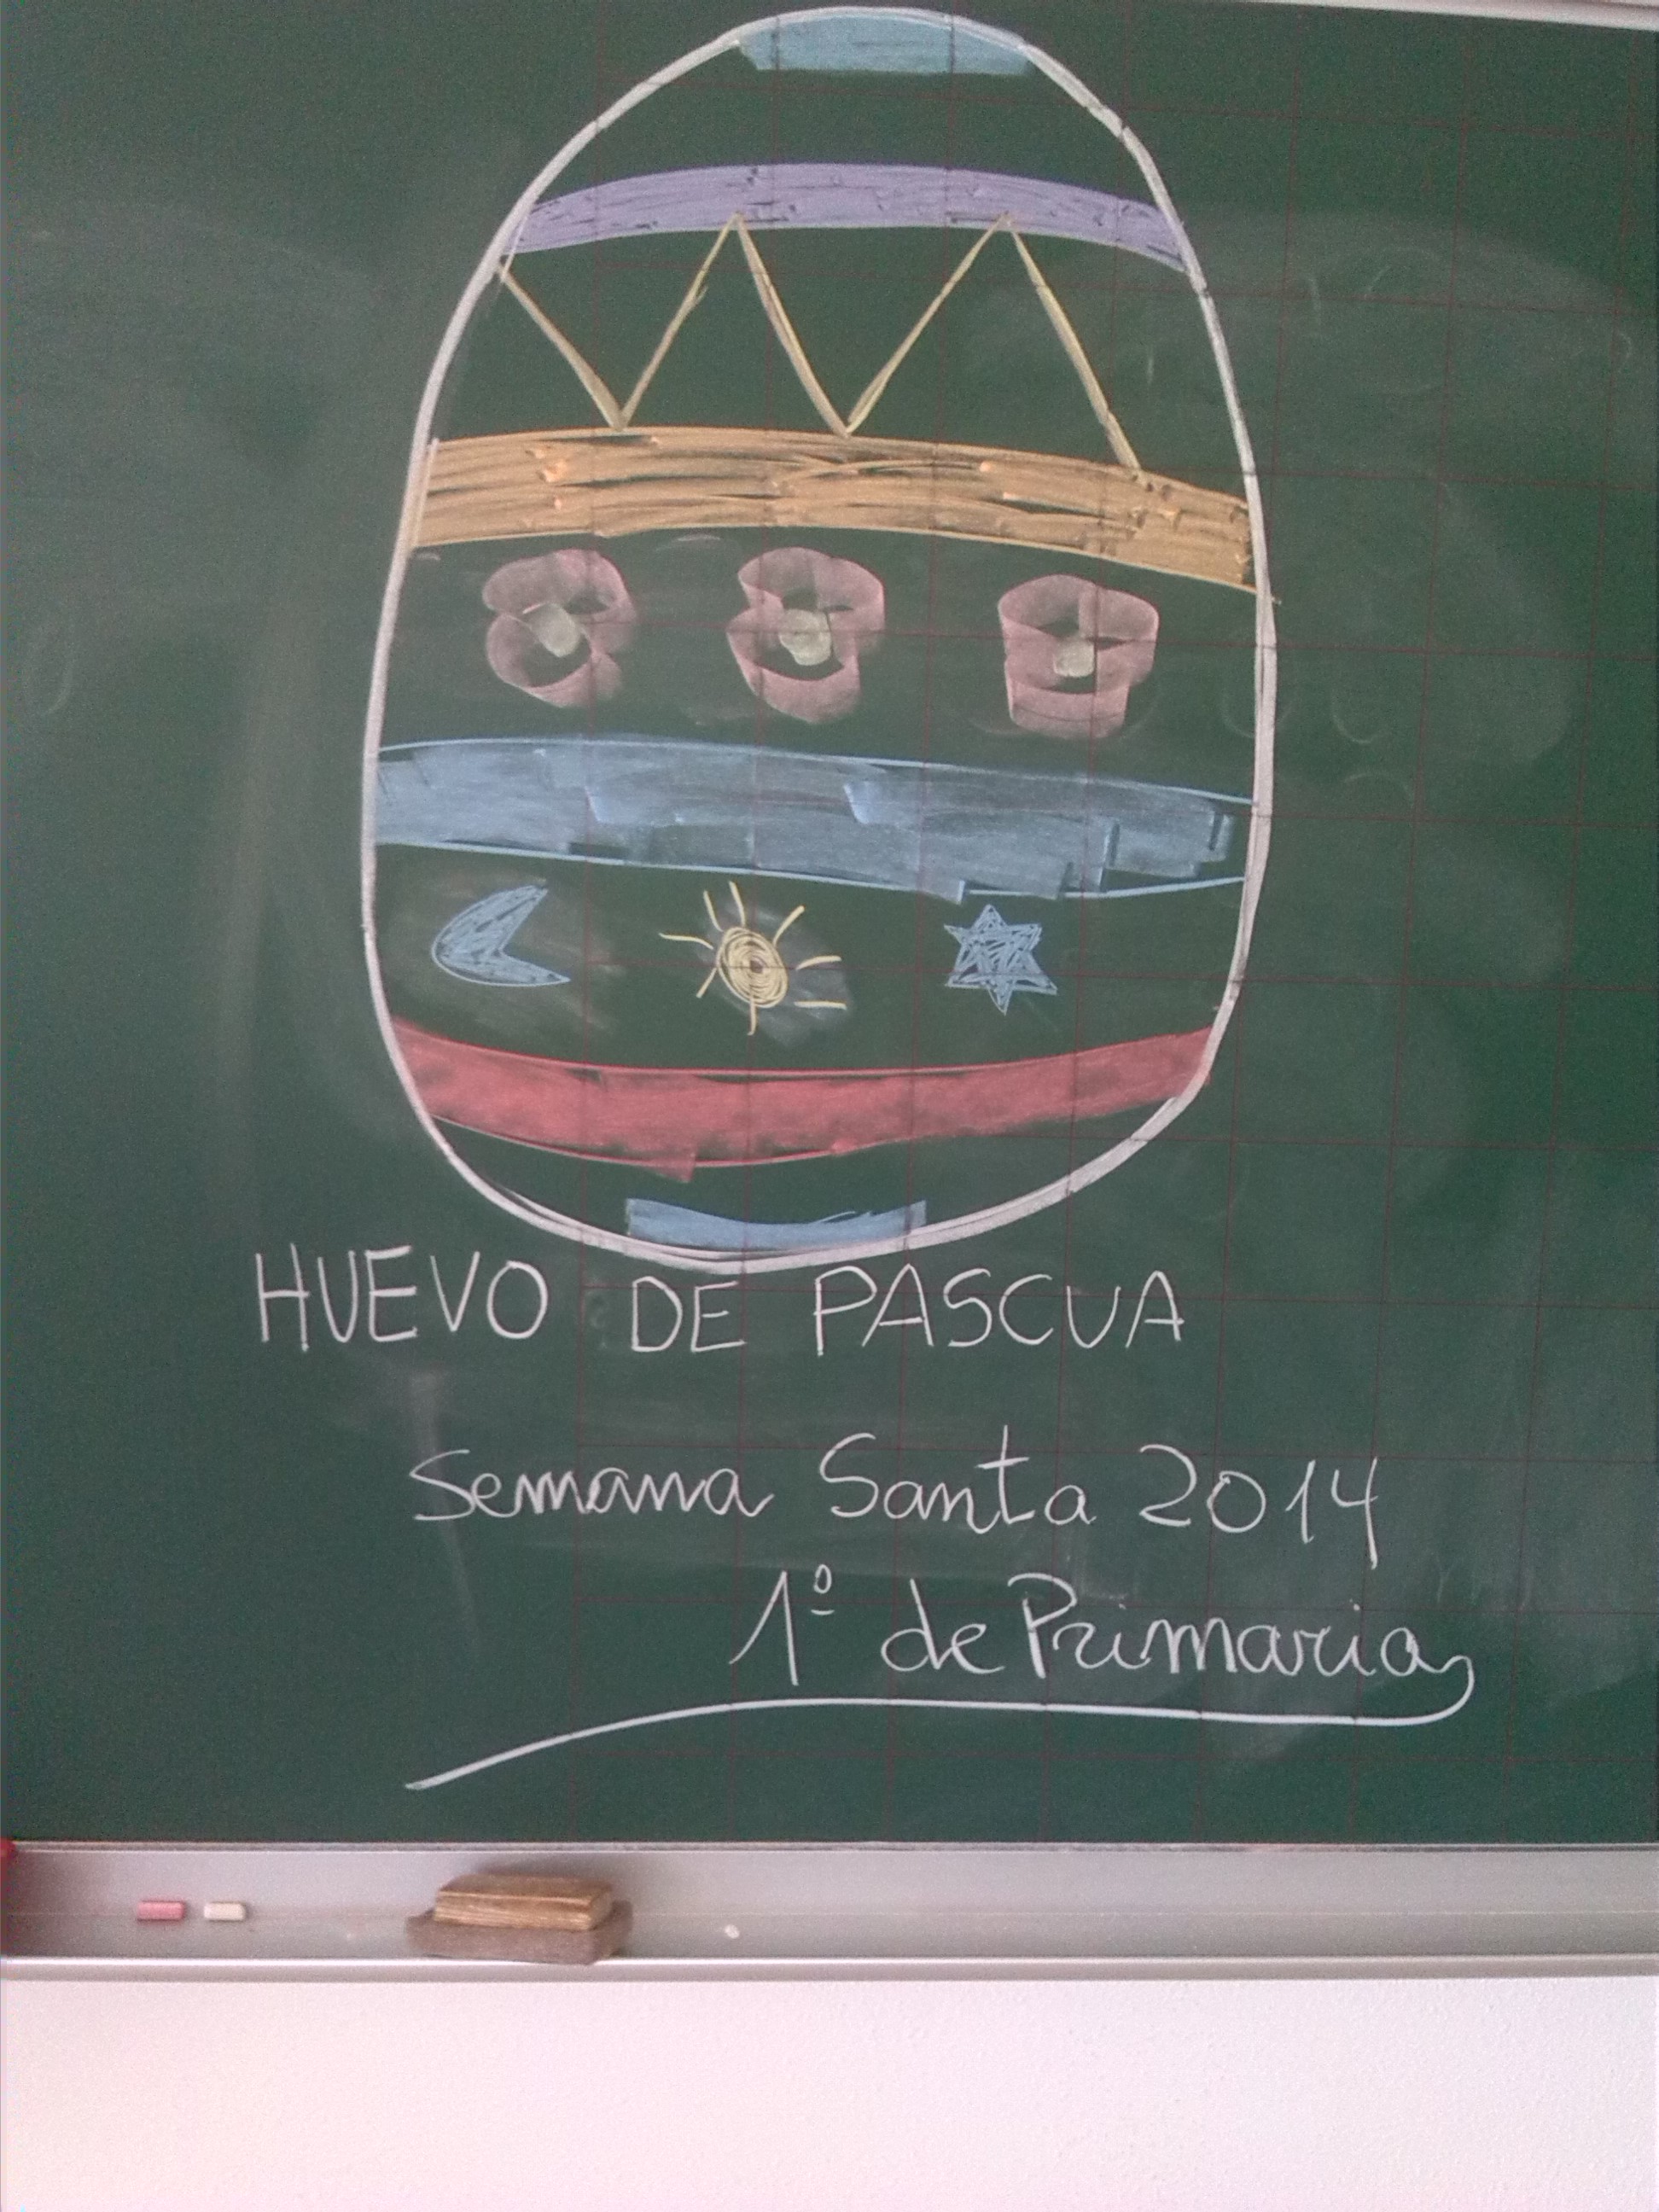 HUEVO DE PASCUA
Semana Santa 2014
1º de Primaria